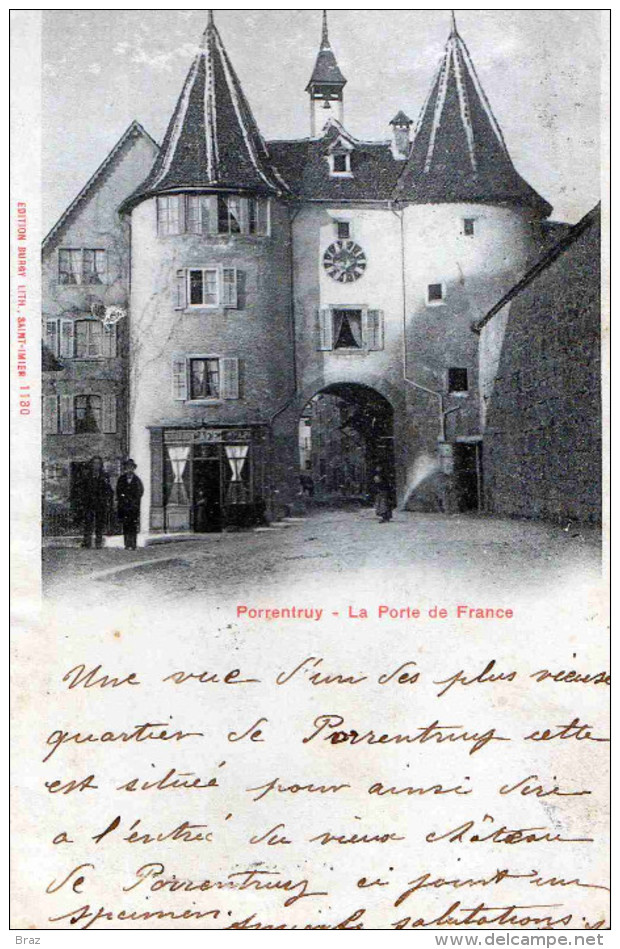 EDITION BURGY LITH., SAINT-IMIER 1130
Porrentruy - La Porte de France
Une vue d'un des plus vieuse
quartier de Porrentruy cette
est situé pour ainsi dire
a l'entré du vieux château
de Porrentruy ci joint un
spécimen. Amicale salutations.
Braz
www.delcampe.net